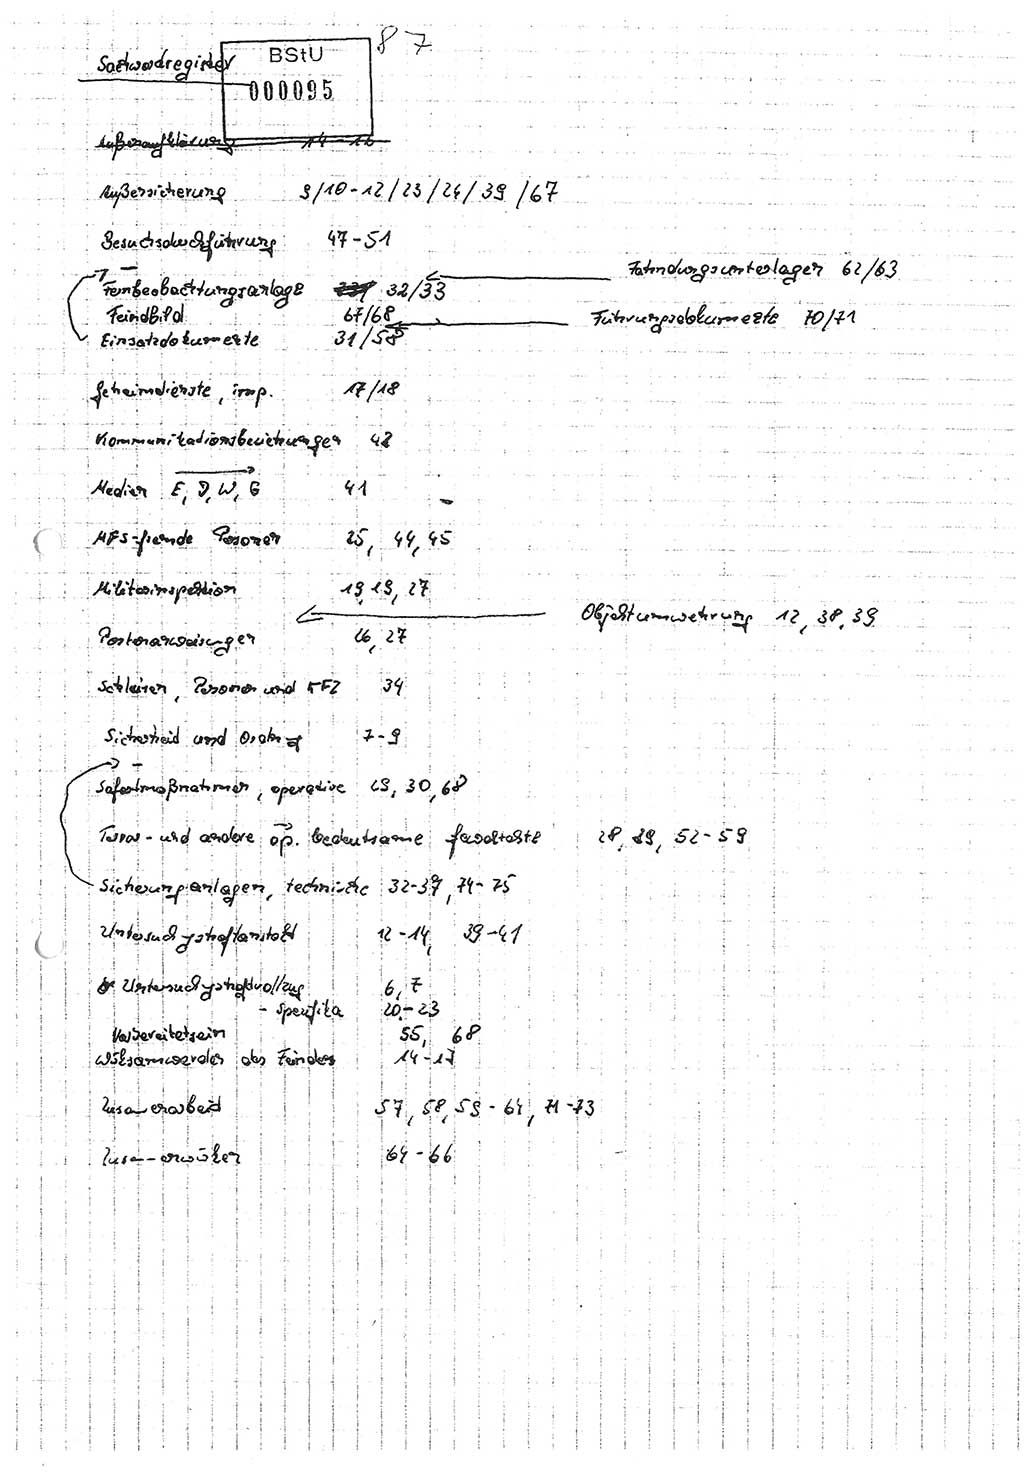 87
Sachwordregister
BStU
000095
Außenaufklärung 14-16
Außensicherung 9/10-12/23/24/39/67
Besuchsdurchführung 47-51
Fahndungsunterlagen 62/63
Fernbeobachtungsanlage 32/33
Feindbild 67/68
Führungsdokumente 70/71
Einsatzdokumente 31/58
Geheimdienste, imp. 17/18
Kommunikationsbeziehungen 42
Medien E, D, W, G 41
MfS-fremde Personen 25, 44, 45
Militärinspektion 19, 27
Objektumwehrung 12, 38, 39
Postenanweisungen 26, 27
Schleusen, Personen und KFZ 34
Sicherheid und Ordnung 7-9
Sofortmaßnahmen, operative 29, 30, 68
Terror- und andere op. bedeutsame 28, 39, 52-59
Sicherunganlagen, technische 32-37, 74-75
Untersuchungshaftanstalt 12-14, 39-41
Untersuchungshaftvollzug 6, 7
- Spezifika 20-23
Vorbereitetsein 55, 68
Wirksamwerden des Feindes 14-17
Zusammenarbeid 57, 58, 59-64, 71-73
Zusammenwirken 64-66